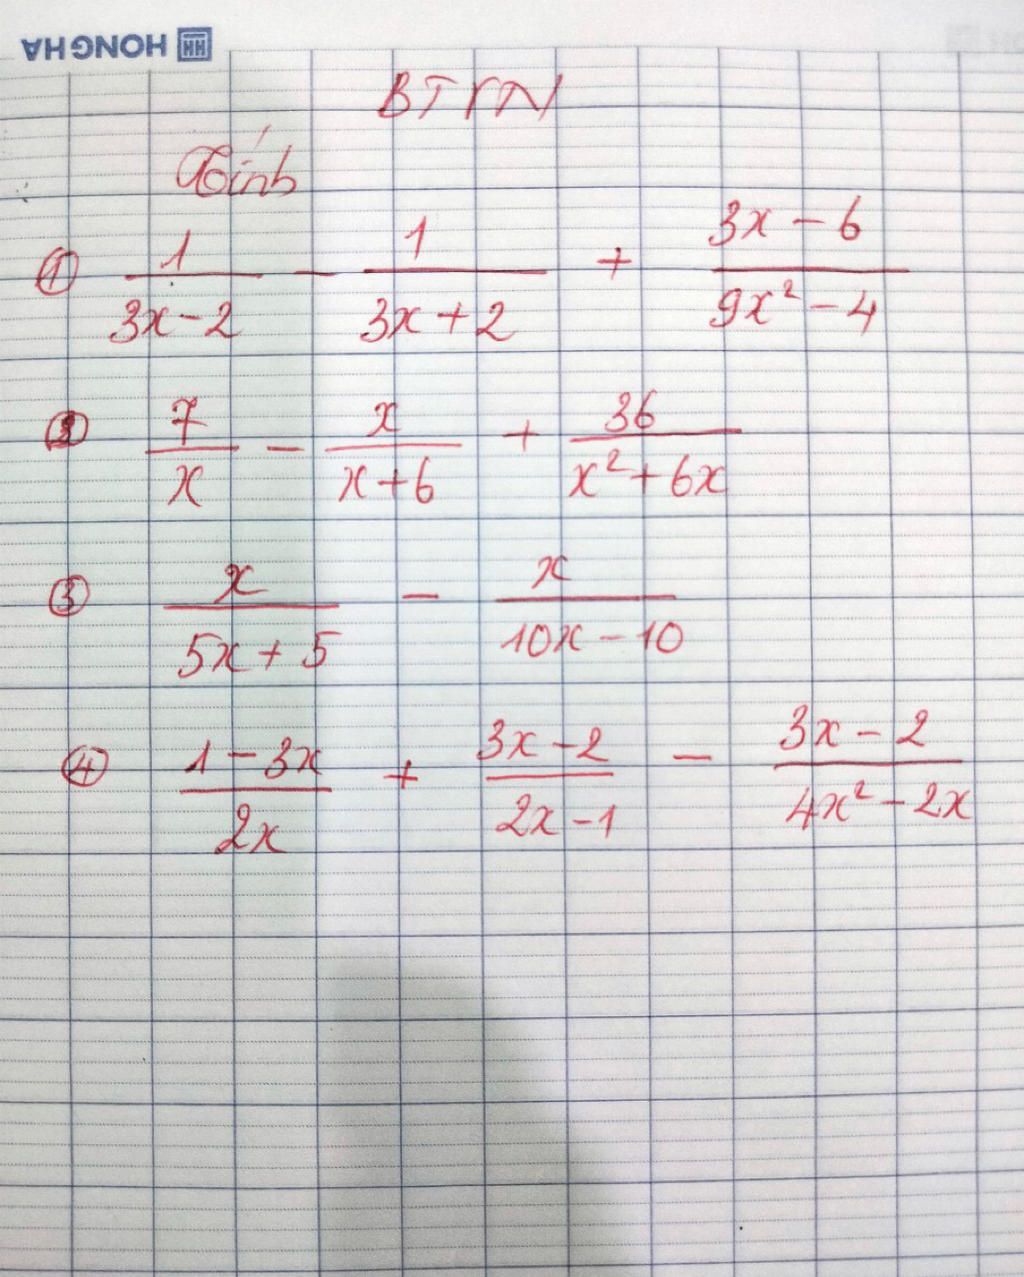 HONG HA
BTVN
Tính
① 1/(3x-2) - 1/(3x+2) + (3x-6)/(9x²-4)
② 7/x - x/(x+6) + 36/(x²+6x)
③ x/(5x+5) - x/(10x-10)
④ (1-3x)/2x + (3x-2)/(2x-1) - (3x-2)/(4x²-2x)